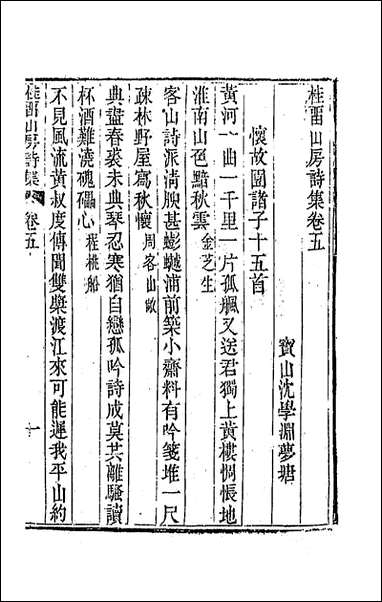 桂畱山房詩集卷五
寶山沈學淵夢塘
懷故園諸子十五首
黃河一曲一千里一片孤颿又送君獨上黃樓惆悵地
淮南山色黯秋雲金芝生
客山詩派淸腴甚蟛蠩浦前築小齋料有吟箋堆一尺
疎林野屋寫秋懷周客山敏
典盡春裘未典琴忍寒猶自戀孤吟詩成莫共離騷讀
杯酒難澆磈礧心程桃船
不見風流黃叔度傳聞雙槳渡江來可能遲我平山約
桂畱山房詩集
卷五
一